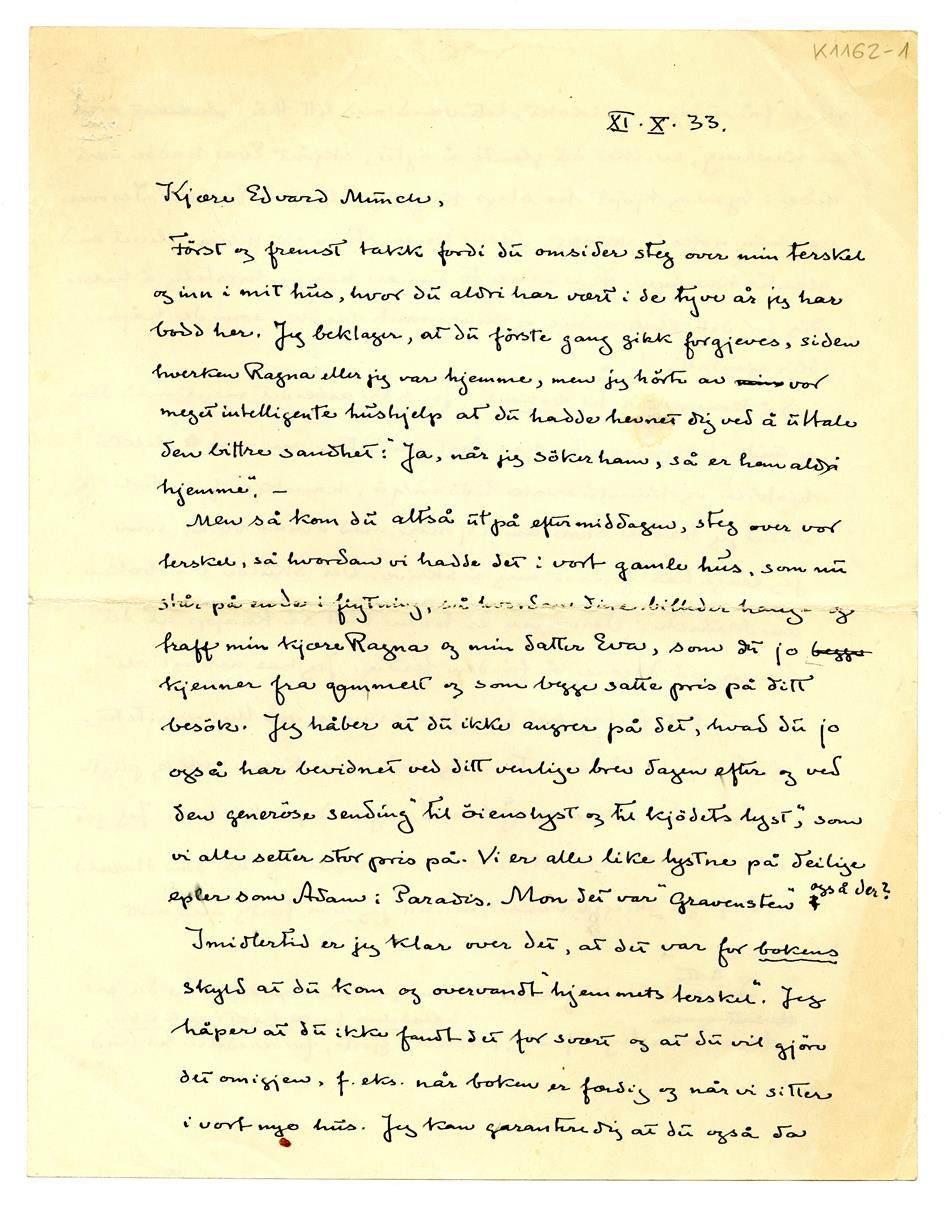 K1162-1
XI. X. 33.
Kjære Edvard Munch,
Först og fremst takk fordi du omsider steg over min terskel
og inn i mit hus, hvor du aldri har vært i de tyve år jeg har
bodd her. Jeg beklager, at du förste gang gikk forgjeves, siden
hverken Ragna eller jeg var hjemme, men jeg hörte av min vor
meget intelligente hushjelp at du hadde hevnet dig ved å uttale
den bittre sandhet: "Ja, når jeg söker ham, så er han aldri
hjemme". —
Men så kom du altså ut på eftermiddagen, steg over vor
terskel, så hvordan vi hadde det i vort gamle hus, som nu
står på ende i flytning, så hvordan dine billeder hang og
traff min kjære Ragna og min datter Eva, som du jo begge
kjenner fra gammelt og som begge satte pris på ditt
besök. Jeg håber at du ikke angrer på det, hvad du jo
også har bevidnet ved ditt venlige brev dagen efter og ved
den generöse sending "til öienslyst og til kjödets lyst", som
vi alle setter stor pris på. Vi er alle like lystne på deilige
epler som Adam i Paradis. Mon det var "Gravensten" også der?
Imidlertid er jeg klar over det, at det var for bokens
skyld at du kom og overvandt "hjemmets terskel". Jeg
håper at du ikke fandt det for svært og at du vil gjöre
det omigjen, f. eks. når boken er færdig og når vi sitter
i vort nye hus. Jeg kan garantere dig at du også da